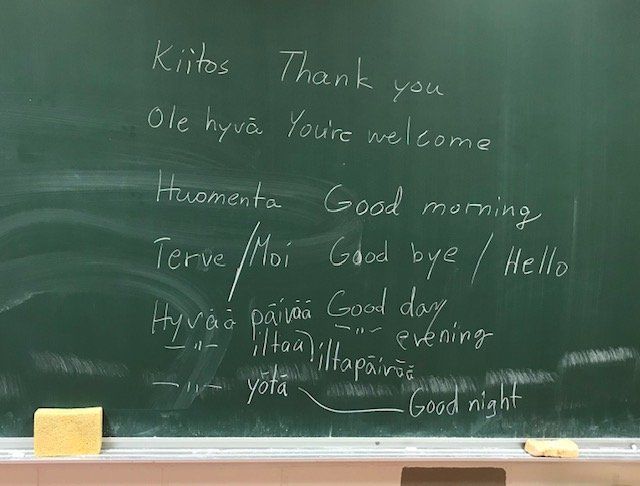 Kiitos Thank you
Ole hyvä You're welcome
Huomenta Good morning
Terve / Moi Good bye / Hello
Hyvää päivää Good day
—"— iltaa —"— evening
iltapäivää
—"— yötä Good night